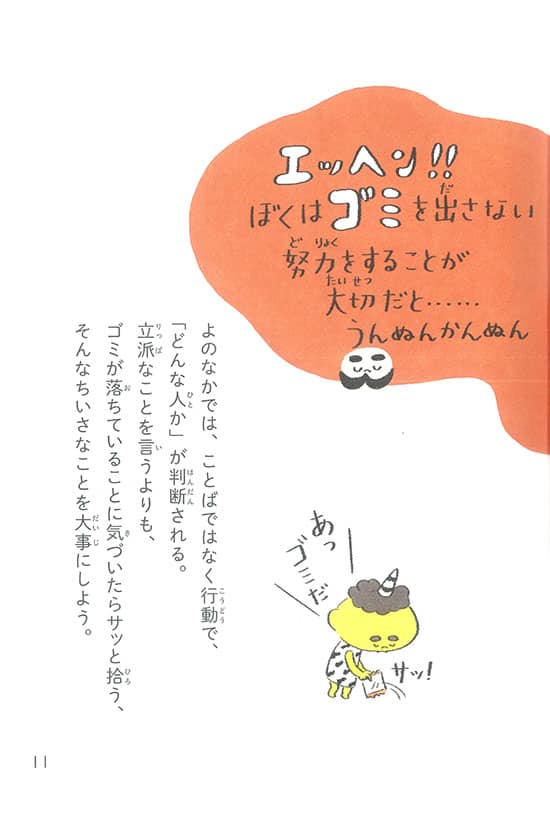 エッヘン!!
ぼくはゴミを出さない
努力をすることが
大切だと……
うんぬんかんぬん
よのなかでは、ことばではなく行動で、
「どんな人か」が判断される。
立派なことを言うよりも、
ゴミが落ちていることに気づいたらサッと拾う、
そんなちいさなことを大事にしよう。
あっ
ゴミだ
サッ!
11